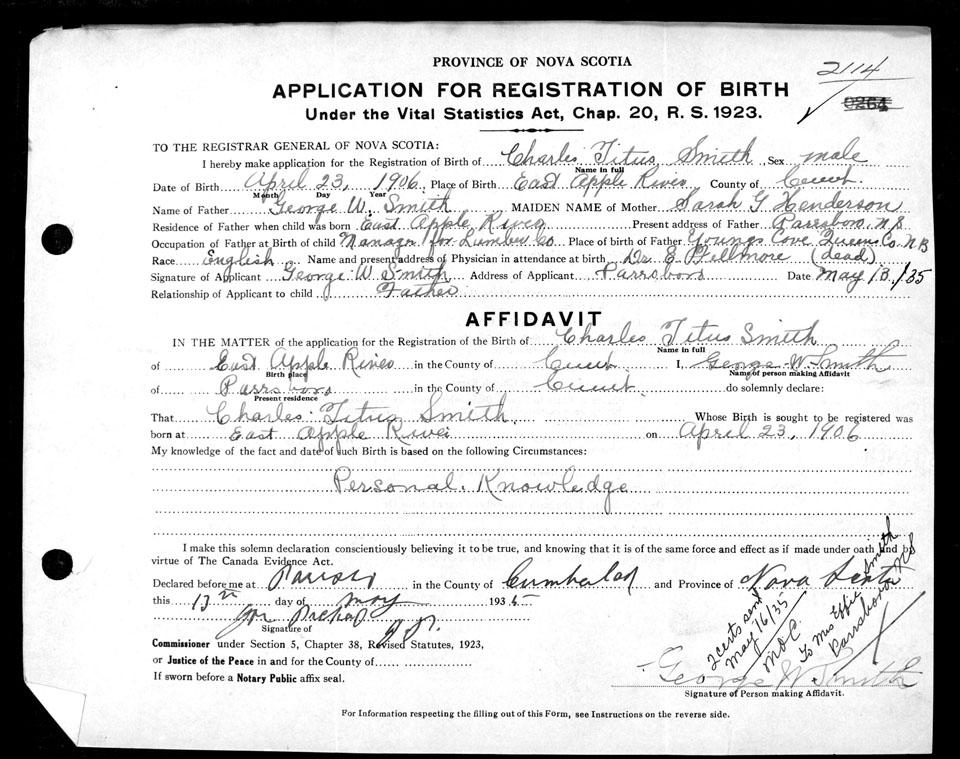 PROVINCE OF NOVA SCOTIA
2114
APPLICATION FOR REGISTRATION OF BIRTH
0264
Under the Vital Statistics Act, Chap. 20, R. S. 1923.
TO THE REGISTRAR GENERAL OF NOVA SCOTIA:
I hereby make application for the Registration of Birth of Charles Titus Smith Sex male
Name in full
Date of Birth April 23, 1906 Place of Birth East Apple River County of Cumb.
Month Day Year
Name of Father George W. Smith MAIDEN NAME of Mother Sarah G Henderson
Residence of Father when child was born East Apple River Present address of Father Parrsboro N.S
Occupation of Father at Birth of child Manager for Lumber Co Place of birth of Father Youngs Cove Queens Co. N.B
Race English Name and present address of Physician in attendance at birth Dr. (dead)
Signature of Applicant George W Smith Address of Applicant Parrsboro Date May 13/35
Relationship of Applicant to child Father
AFFIDAVIT
IN THE MATTER of the application for the Registration of the Birth of Charles Titus Smith
Name in full
of East Apple River in the County of Cumb I, George W. Smith
Birth place Name of person making Affidavit
of Parrsboro in the County of Cumb do solemnly declare:
Present residence
That Charles Titus Smith Whose Birth is sought to be registered was
born at East Apple River on April 23, 1906
My knowledge of the fact and date of such Birth is based on the following Circumstances:
Personal Knowledge
I make this solemn declaration conscientiously believing it to be true, and knowing that it is of the same force and effect as if made under oath and by
virtue of The Canada Evidence Act.
Declared before me at in the County of Cumberland and Province of Nova Scotia
this 13th day of May 1935
Signature of
Commissioner under Section 5, Chapter 38, Revised Statutes, 1923,
or Justice of the Peace in and for the County of
If sworn before a Notary Public affix seal.
2 certs sent
May 16/35
To Mrs Effie Smith
Parrsboro NS
George W. Smith
Signature of Person making Affidavit.
For Information respecting the filling out of this Form, see Instructions on the reverse side.